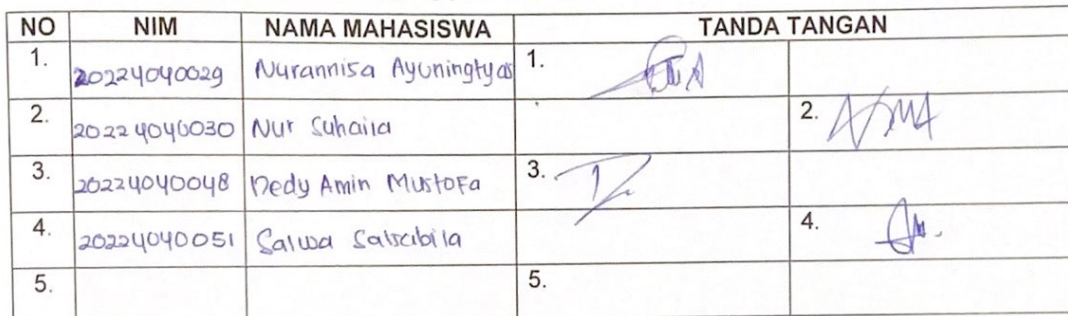 NO NIM NAMA MAHASISWA TANDA TANGAN
1. 20224040029 Nurannisa Ayuningtyas 1.
2. 20224040030 Nur Suhaila 2.
3. 20224040048 Dedy Amin Mustofa 3.
4. 20224040051 Salwa Salsabila 4.
5. 5.